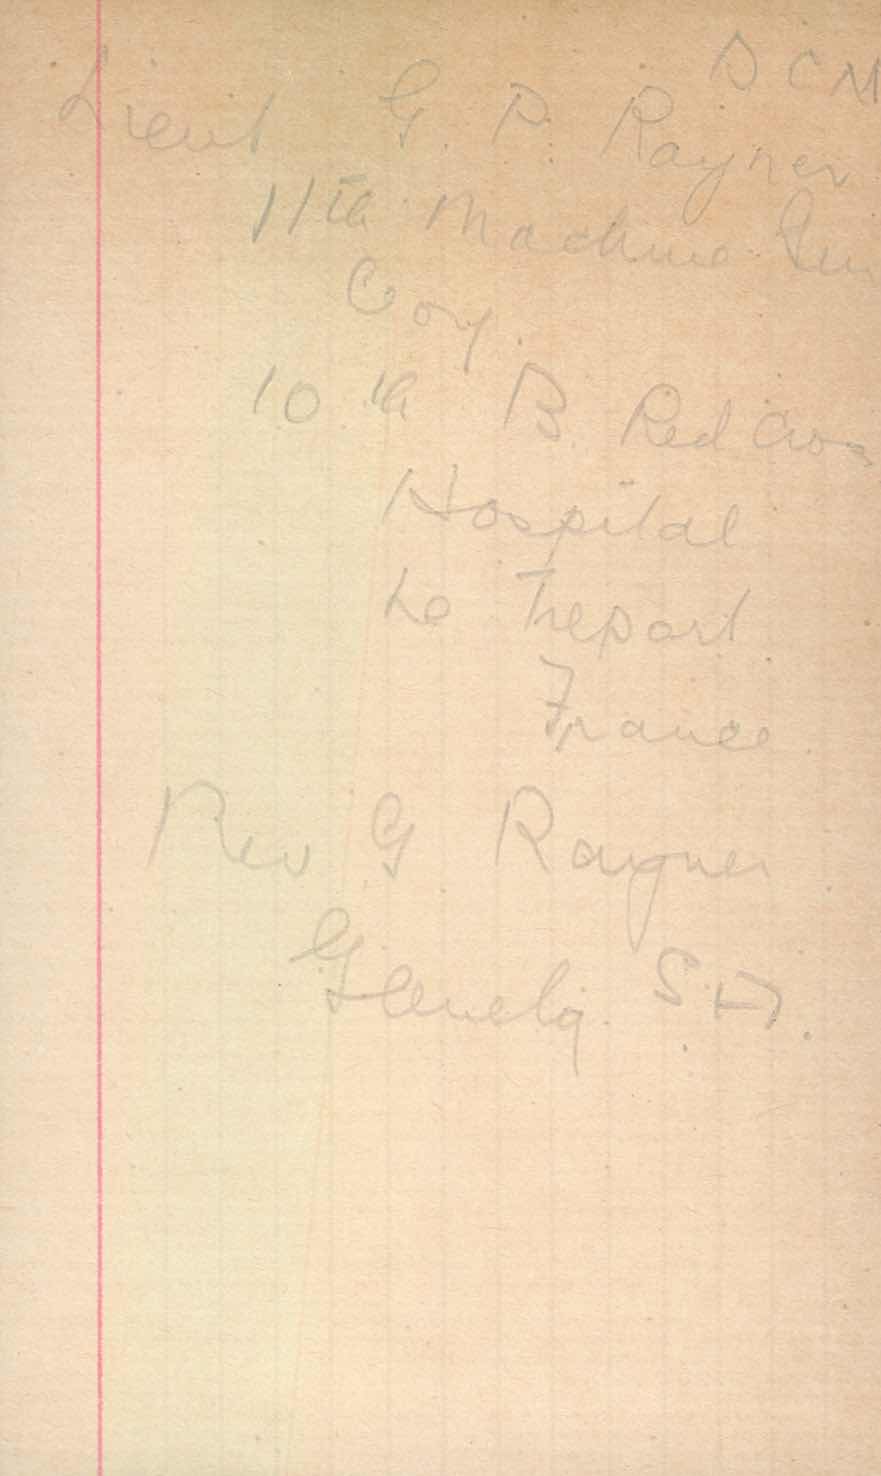 D C M
Lieut G. P. Rayner
11th Machine Gun
Coy.
10th B. Red Cross
Hospital
Le Treport
France
Rev G Rayner
Glenelg. S.A.